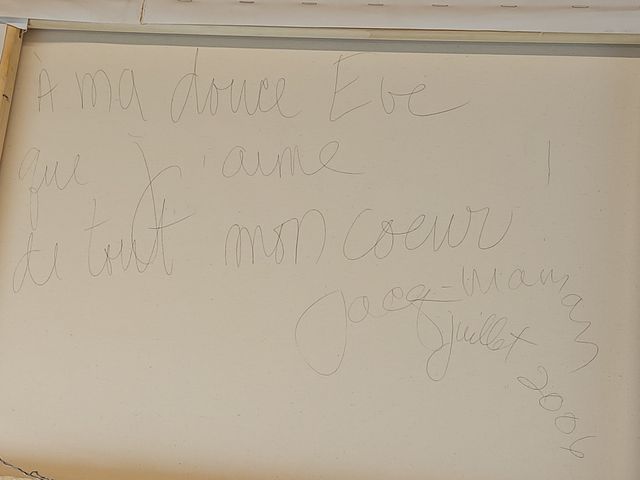 À ma douce Eve
que j'aime
de tout mon coeur
Jacq-Maman
juillet 2006